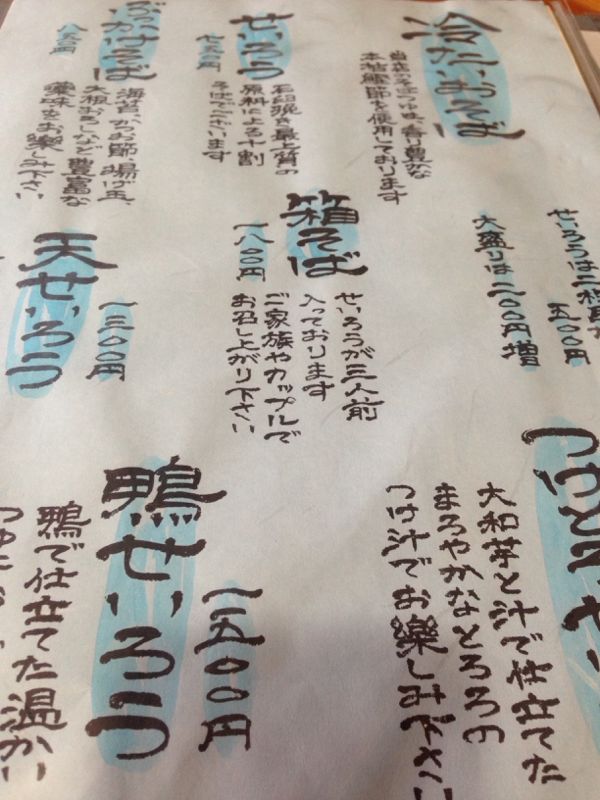 冷たいおそば
当店のそばつゆは、香り豊かな
本枯鰹節を使用しております
せいろう
七五〇円
石臼挽き最上質の
原料による十割
そばでございます
ぶっかけそば
八五〇円
海苔、かつお節、揚げ玉、
大根おろしなど豊富な
薬味をお楽しみ下さい
せいろうは二枚
五〇〇円
大盛りは二〇〇円増
箱そば
一八〇〇円
せいろうが三人前
入っております
ご家族やカップルで
お召し上がり下さい
天せいろう
一三〇〇円
つけとろ
大和芋と汁で仕立てた
まろやかなとろろの
つけ汁でお楽しみ下さい
鴨せいろう
一二五〇〇円
鴨で仕立てた温かい